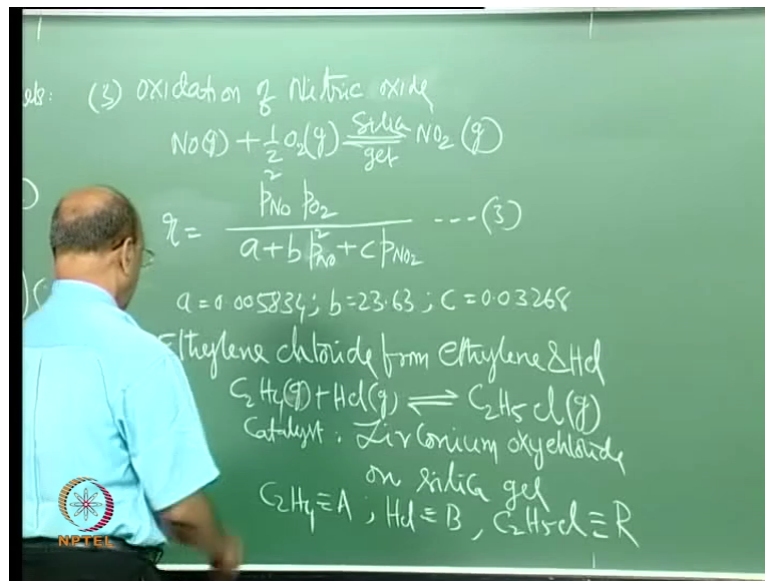 (3) Oxidation of Nitric oxide
NO(g) + 1/2 O₂(g) ⇌ NO₂(g)
Silica
gel
r = p²NO pO₂ / (a + b p²NO + c pNO₂) ---- (3)
a = 0.005834; b = 23.63; c = 0.03268
Ethylene chloride from ethylene & Hcl
C₂H₄(g) + Hcl(g) ⇌ C₂H₅cl(g)
Catalyst: Zirconium oxychloride
on silica gel
C₂H₄ ≡ A ; Hcl ≡ B, C₂H₅cl ≡ R
NPTEL